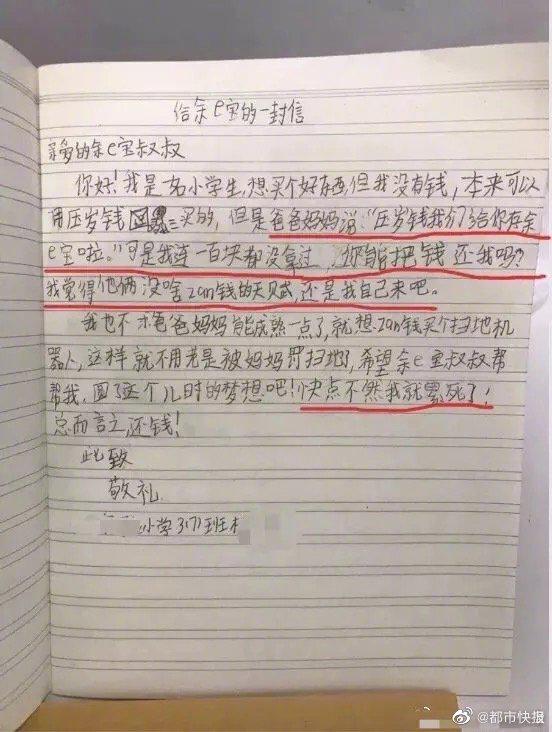 给余e宝的一封信
亲爱的余e宝叔叔
你好！我是一名小学生，想买个好东西，但我没有钱，本来可以
用压岁钱买的，但是爸爸妈妈说："压岁钱我们给你存余
e宝啦。"可是我连一百块都没拿过，你能把钱还我吗？
我觉得他俩没啥zan钱的天贝武，还是我自己来吧。
我也不求爸爸妈妈能成熟一点了，就想zan钱买个扫地机
器人，这样就不用光是被妈妈罚扫地了，希望余e宝叔叔帮
帮我，圆了这个儿时的梦想吧！快点不然我就累死了！
总而言之，还钱！
此致
敬礼
小学3(7)班
@都市快报